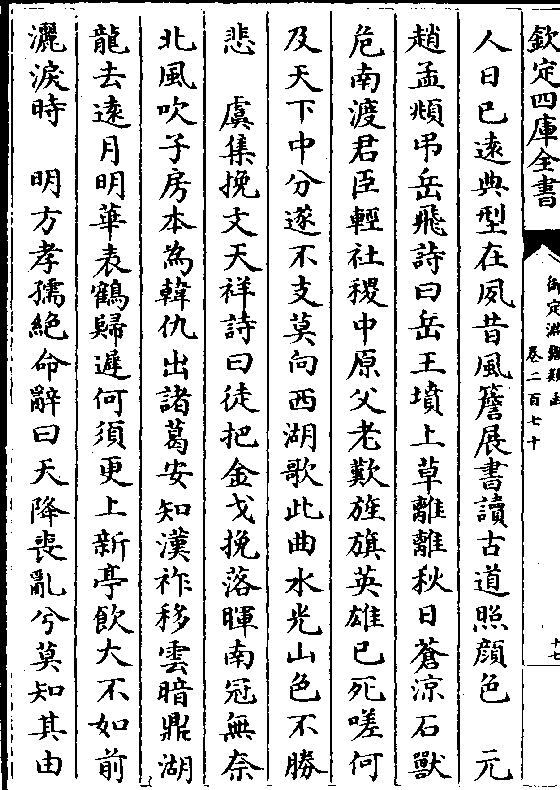 欽定四庫全書
御定淵鑑類函
卷二百七十
十七
人日已遠典型在夙昔風簷展書讀古道照顔色　元
趙孟頫弔岳飛詩曰岳王墳上草離離秋日蒼涼石獸
危南渡君臣輕社稷中原父老歎旌旗英雄已死嗟何
及天下中分遂不支莫向西湖歌此曲水光山色不勝
悲　虞集挽文天祥詩曰徒把金戈挽落暉南冠無奈
北風吹子房本為韓仇出諸葛安知漢祚移雲暗鼎湖
龍去遠月明華表鶴歸遲何須更上新亭飲大不如前
灑淚時　明方孝孺絶命辭曰天降喪亂兮莫知其由